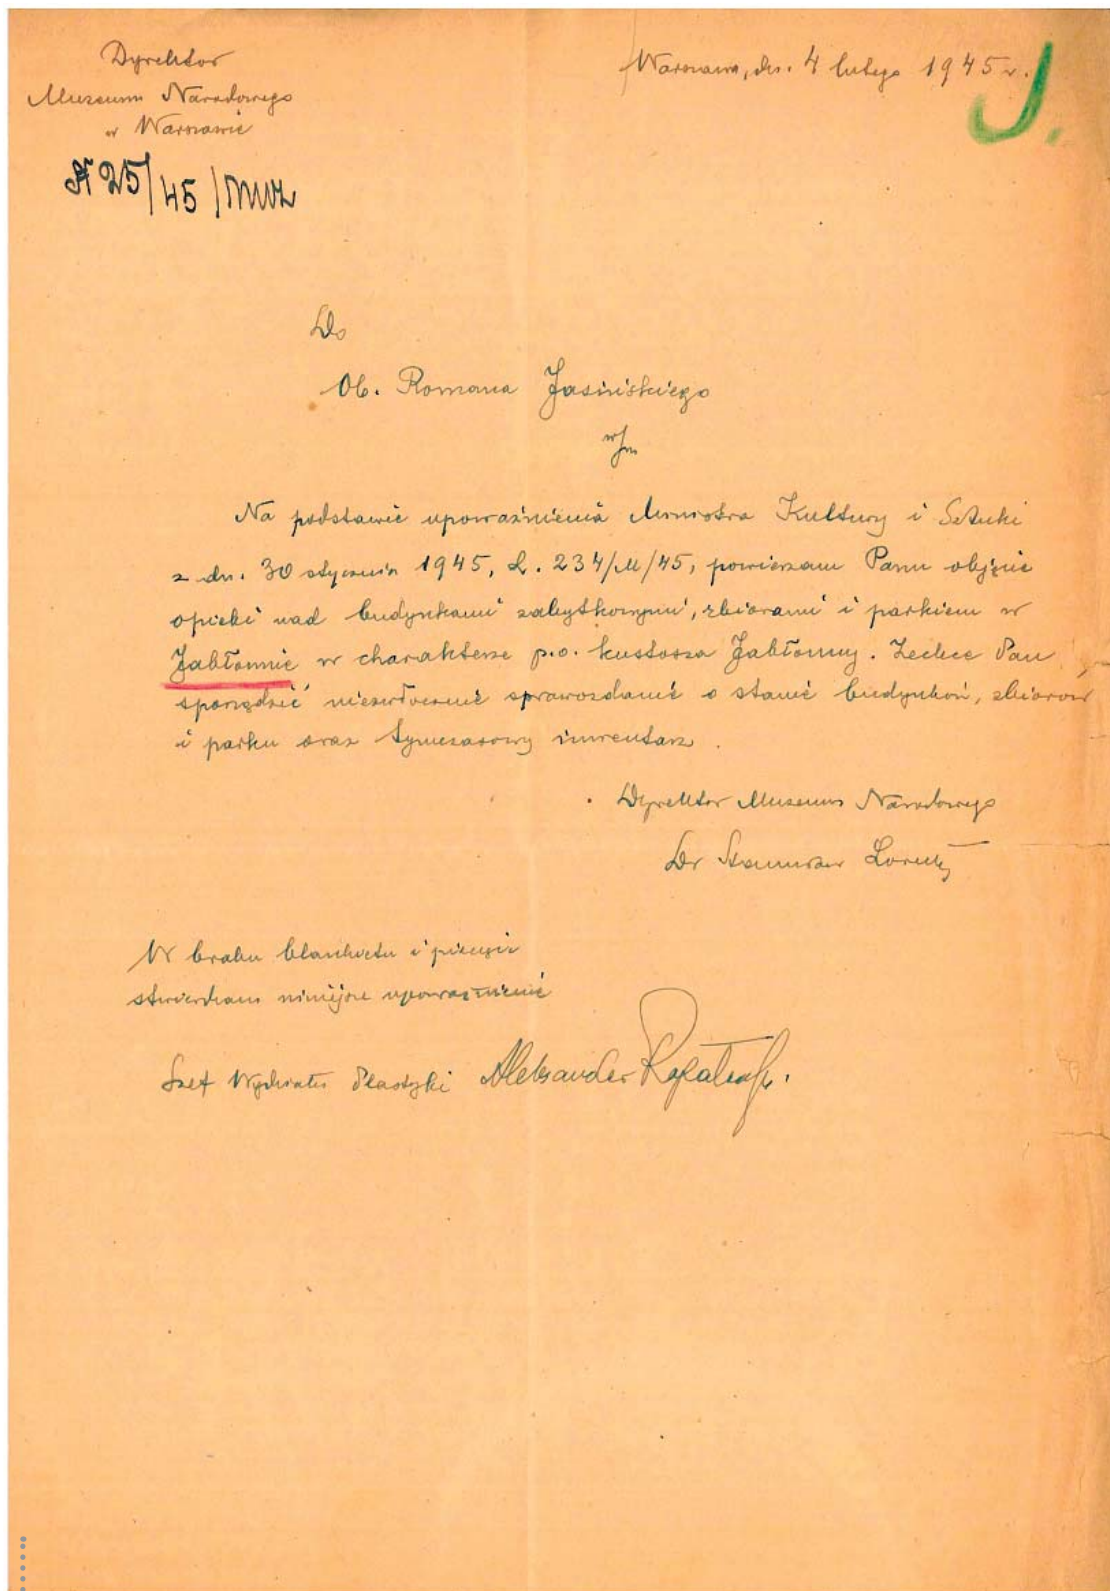 Dyrektor
Muzeum Narodowego
w Warszawie
Warszawa, dn. 4 lutego 1945 r.
J.
N 25/45/Muz
Do
Ob. Romana Jasińskiego
w/m
Na podstawie upoważnienia Ministra Kultury i Sztuki
z dn. 30 stycznia 1945, L. 234/M/45, powierzam Panu objęcie
opieki nad budynkami zabytkowymi, zbiorami i parkiem w
Jabłonnie w charakterze p.o. kustosza Jabłonny. Zechce Pan
sporządzić niezwłocznie sprawozdanie o stanie budynków, zbiorów
i parku oraz tymczasowy inwentarz.
Dyrektor Muzeum Narodowego
Dr Stanisław Lorentz
W braku blankietu i pieczęci
stwierdzam niniejsze upoważnienie
Szef Wydziału Plastyki Aleksander